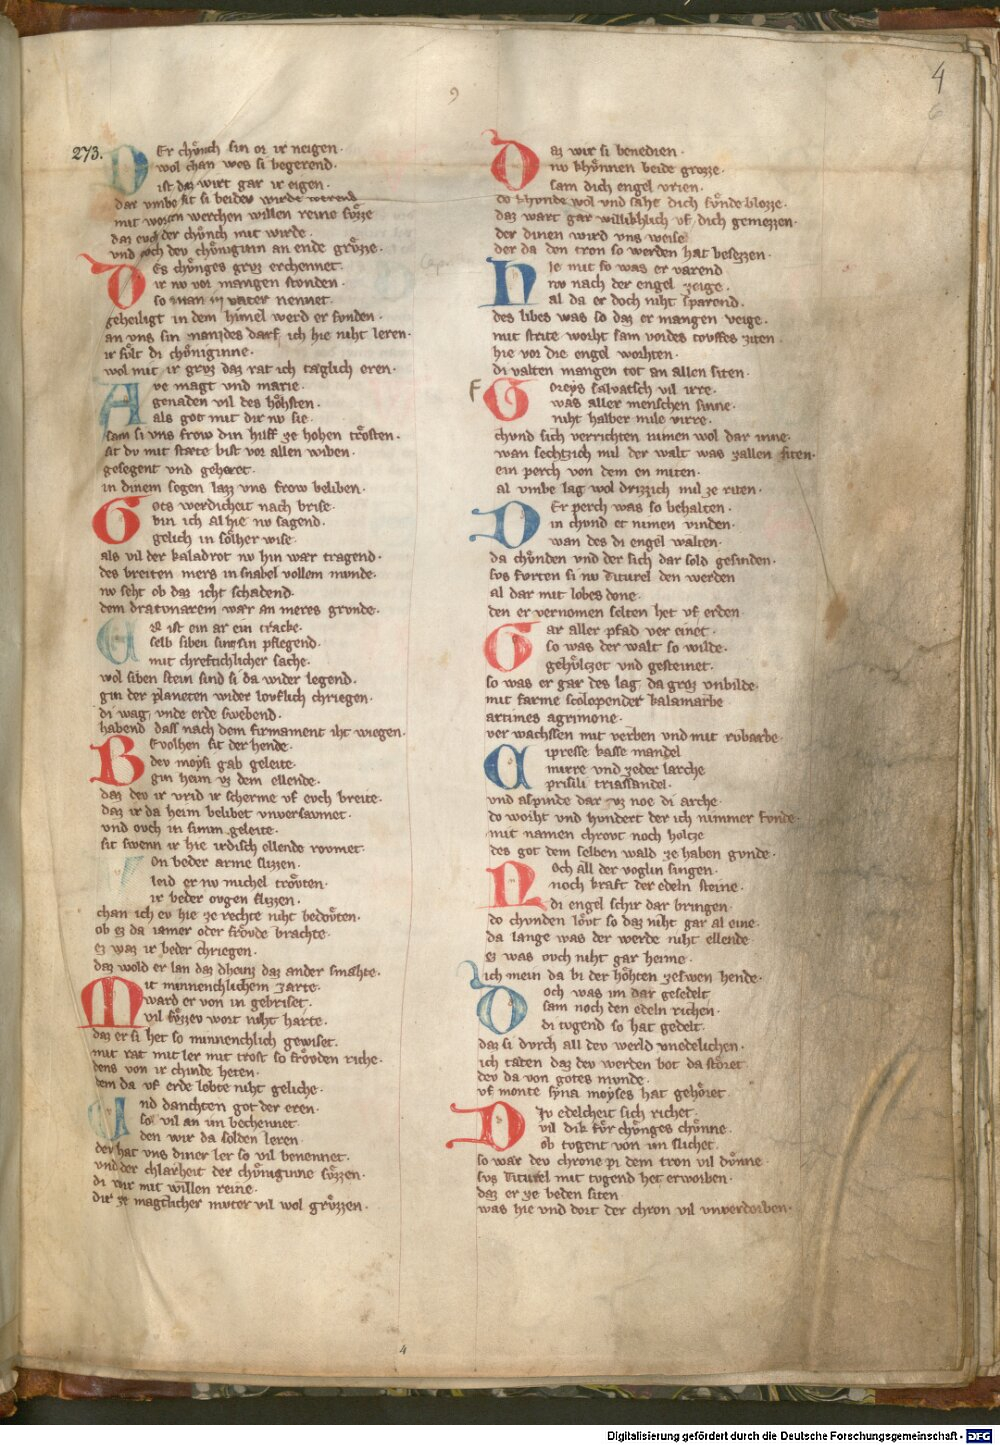 4
6
9
273.
Er choͤnch sin or ir neigen·
wol chan wes si begerend·
ist daz wirt gar ir eigen·
dar vmbe sit si beidev wirde werend
mit worten werchen willen reine svͤzze
daz evch der choͤnch mit wirde·
vnd och dev choͤniginn an ende grvͤzze·
DEs choͤnges grvz erchennet·
ir nv vor mangen stvnden·
so man in vater nennet
geheiligt in dem himel werd er fvnden·
an vns sin manzdes darf ich hie niht leren·
ir svͤlt di choͤniginne·
wol mit ir grvz daz rat ich taglich eren·
Ave magt vnd marie·
genaden vil des hoͤhsten·
als got mit dir nv sie·
sam si vns frow din hilff ze hohen troͤsten·
sit dv mit stæte bist vor allen wiben·
gesegent vnd geheret·
in dinem segen lazz vns frow beliben·
Gots werdicheit nach brise·
bin ich al hie nv sagend·
gelich in solher wise·
als vil der kaladrot nv hin wær tragend·
des breiten mers in snabel vollem mvnde·
nv seht ob daz icht schadend·
dem dratvnarem wær an meres grvnde·
ist ein ar ein tracke·
selb siben sin pflegend·
mit chreftichlicher sache·
wol siben stein sind si da wider legend·
gin der planeten wider lovflich chriegen·
di wag vnde erde swebend·
habend dass nach dem firmament iht wiegen·
Bevolhen sit der hende·
dev moysi gab geleite·
gin heim vz dem ellende·
daz dev ir vrid ir scherme vf evch breite·
daz ir da heim belibet vnversavmet·
vnd ovch in sinem geleite·
sit swenn ir hie irdisch ellende rovmet·
Von beder arme slizzen·
leid er nv michel trovten·
ir beder ovgen flizzen·
chan ich ev hie ze rechte niht bedovten·
ob ez da iamer oder frovde brachte·
ez waz ir beder chriegen·
daz wold er lan daz dheinz daz ander smahte·
Mit minnenchlichem zarte·
ward er von in gebriset·
vil svͤzzev wort niht harte·
daz er si het so minnenchlich gewiset·
mit rat mit ler mit trost so frovden riche·
dens von ir chinde heten·
dem da vf erde lebte niht geliche·
Vnd danchten got der eren·
so vil an im bechennet·
den wir da solden leren
der hat vns diner ler so vil benennet·
vnd der chlarheit der choͤniginne svͤzzen·
di wir mit willen reine·
dir ze magtlicher mvter vil wol grvͤzzen·
Daz wir si benedien·
nv khvnnen beide grozze·
sam dich engel vrien·
do khvnde wol vnd saht dich svnde blozze·
daz wart gar willikhlich vf dich gemezzen·
der dinen wird vns weise
der da den tron so werden hat besezzen·
Nie mit so was er varend
nv nach der engel zeige·
al da er doch niht sparend·
des libes was so daz er mangen veige·
mit strite worht sam voides tovffes ziten·
hie vor die engel worhten·
di valten mangen tot an allen siten·
F
Goreys salvatsch vil irre·
was aller menschen sinne·
niht halber mile virre·
chvnd sich verrichten nimen wol dar inne·
wan sechtzich mil der walt was zallen siten·
ein perch von dem en miten·
al vmbe lag wol drizzich mil ze riten·
DEr perch was so behalten·
in chvnd et nimen vinden·
wan des di engel walten·
da chvnden vnd der sich dar sold gesinden·
svs fvrten si nv Titurel den werden
al dar mit lobes done·
den er vernomen selten het vf erden·
Gar aller pfad ver einet·
so was der walt so wilde·
gehvltzet vnd gesteinet·
so was er gar des lag da groz vnbilde·
mit farme scolopender kalamarbe
artimes agrimone·
ver wachssen mit verben vnd mit robarbe·
Cipresse basse mandel
mirre vnd zeder larche
prisili triassandel·
vnd aspinde dar vz noe di arche·
do worht vnd hvndert der ich nimmer fvnde·
mit namen chrovt noch holtze
des got dem selben wald ze haben gvnde·
Noch all der voglin singen·
noch kraft der edeln steine·
di engel schir dar bringen·
do chvnden lovt so daz niht gar al eine·
da lange was der werde niht ellende
ez was ovch niht gar heime·
ich mein da bi der hoͤhten zeswen hende·
Doch was im dar gesedelt
sam noch den edeln richen·
di tvgend so hat gedelt·
daz si dvrch all dev werld vnedelichen·
ich taten daz dev werden bot da stoͤret
dev da von gotes mvnde·
vf monte syna moyses hat gehoͤret·
Div edelcheit sich richet·
vil dik fvr choͤnges choͤnne·
ob tvgent von im slichet·
so wær dev chrone pi dem tron vil dvnne·
svs Titurel mit tvgend het erworben·
daz er ze beden siten
was hie vnd dort der chron vil vnverdorben·
4
Digitalisierung gefördert durch die Deutsche Forschungsgemeinschaft - DFG